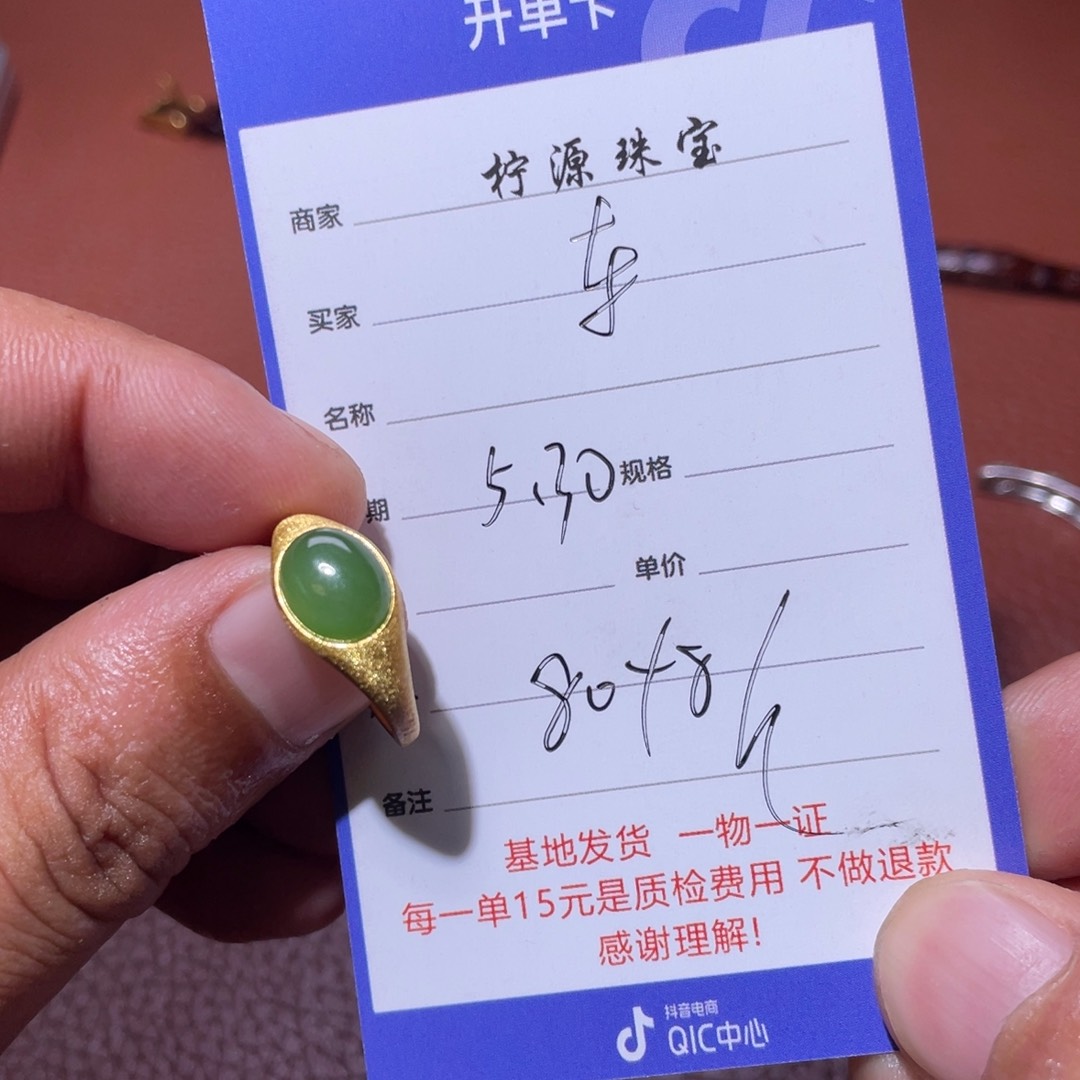 开单卡
商家 柠源珠宝
买家 车
名称
期 5.30 规格
单价
备注
基地发货 一物一证
每一单15元是质检费用 不做退款
感谢理解!
抖音电商
QIC中心